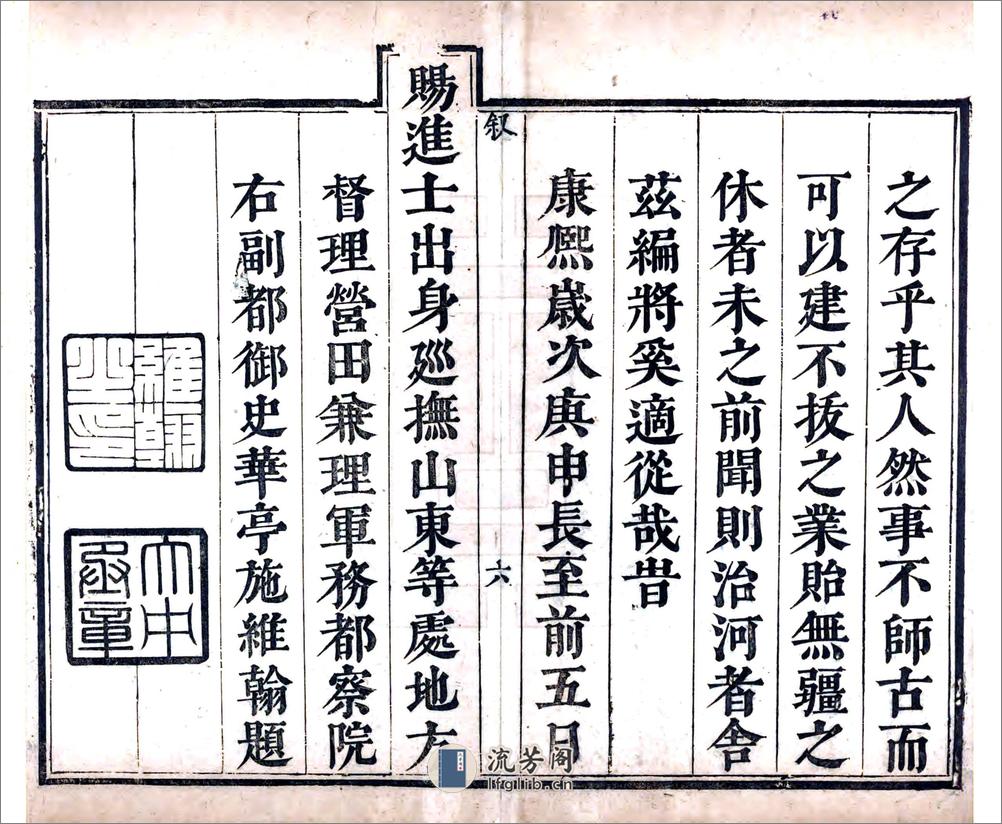 之存乎其人然事不師古而
可以建不拔之業貽無疆之
休者未之前聞則治河者舍
茲編將奚適從哉旹
康熙歲次庚申長至前五日
叙
十六
賜進士出身廵撫山東等處地方
督理營田兼理軍務都察院
右副都御史華亭施維翰題
維翰之印
大中丞章
流芳阁
lfglib.cn